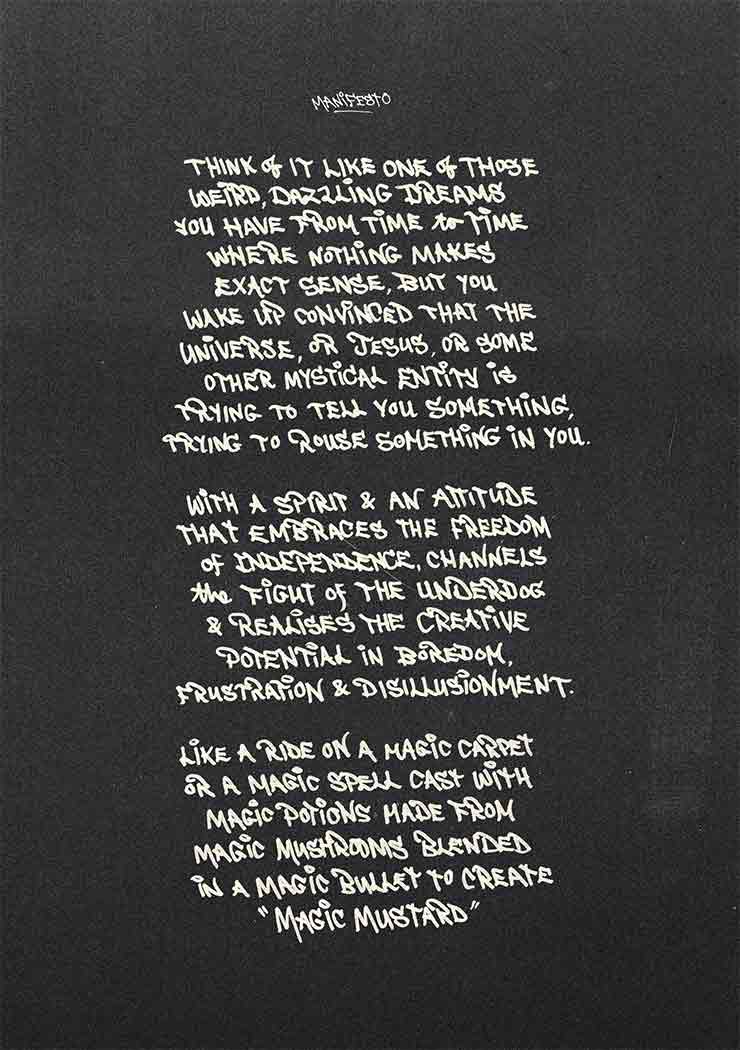 MANIFESTO
THINK of IT LIKE ONE of THOSE
WEIRD, DAZZLING DREAMS
YOU HAVE FROM TIME to TIME
WHERE NOTHING MAKES
EXACT SENSE, BUT YOU
WAKE UP CONVINCED THAT THE
UNIVERSE, OR JESUS, OR SOME
OTHER MYSTICAL ENTITY IS
TRYING TO TELL YOU SOMETHING,
TRYING TO ROUSE SOMETHING IN YOU.
WITH A SPIRIT & AN ATTITUDE
THAT EMBRACES THE FREEDOM
of INDEPENDENCE, CHANNELS
the FIGHT of THE UNDERDOG
& REALISES THE CREATIVE
POTENTIAL IN BOREDOM,
FRUSTRATION & DISILLUSIONMENT.
LIKE A RIDE ON A MAGIC CARPET
OR A MAGIC SPELL CAST WITH
MAGIC POTIONS MADE FROM
MAGIC MUSHROOMS BLENDED
IN A MAGIC BULLET TO CREATE
"MAGIC MUSTARD"